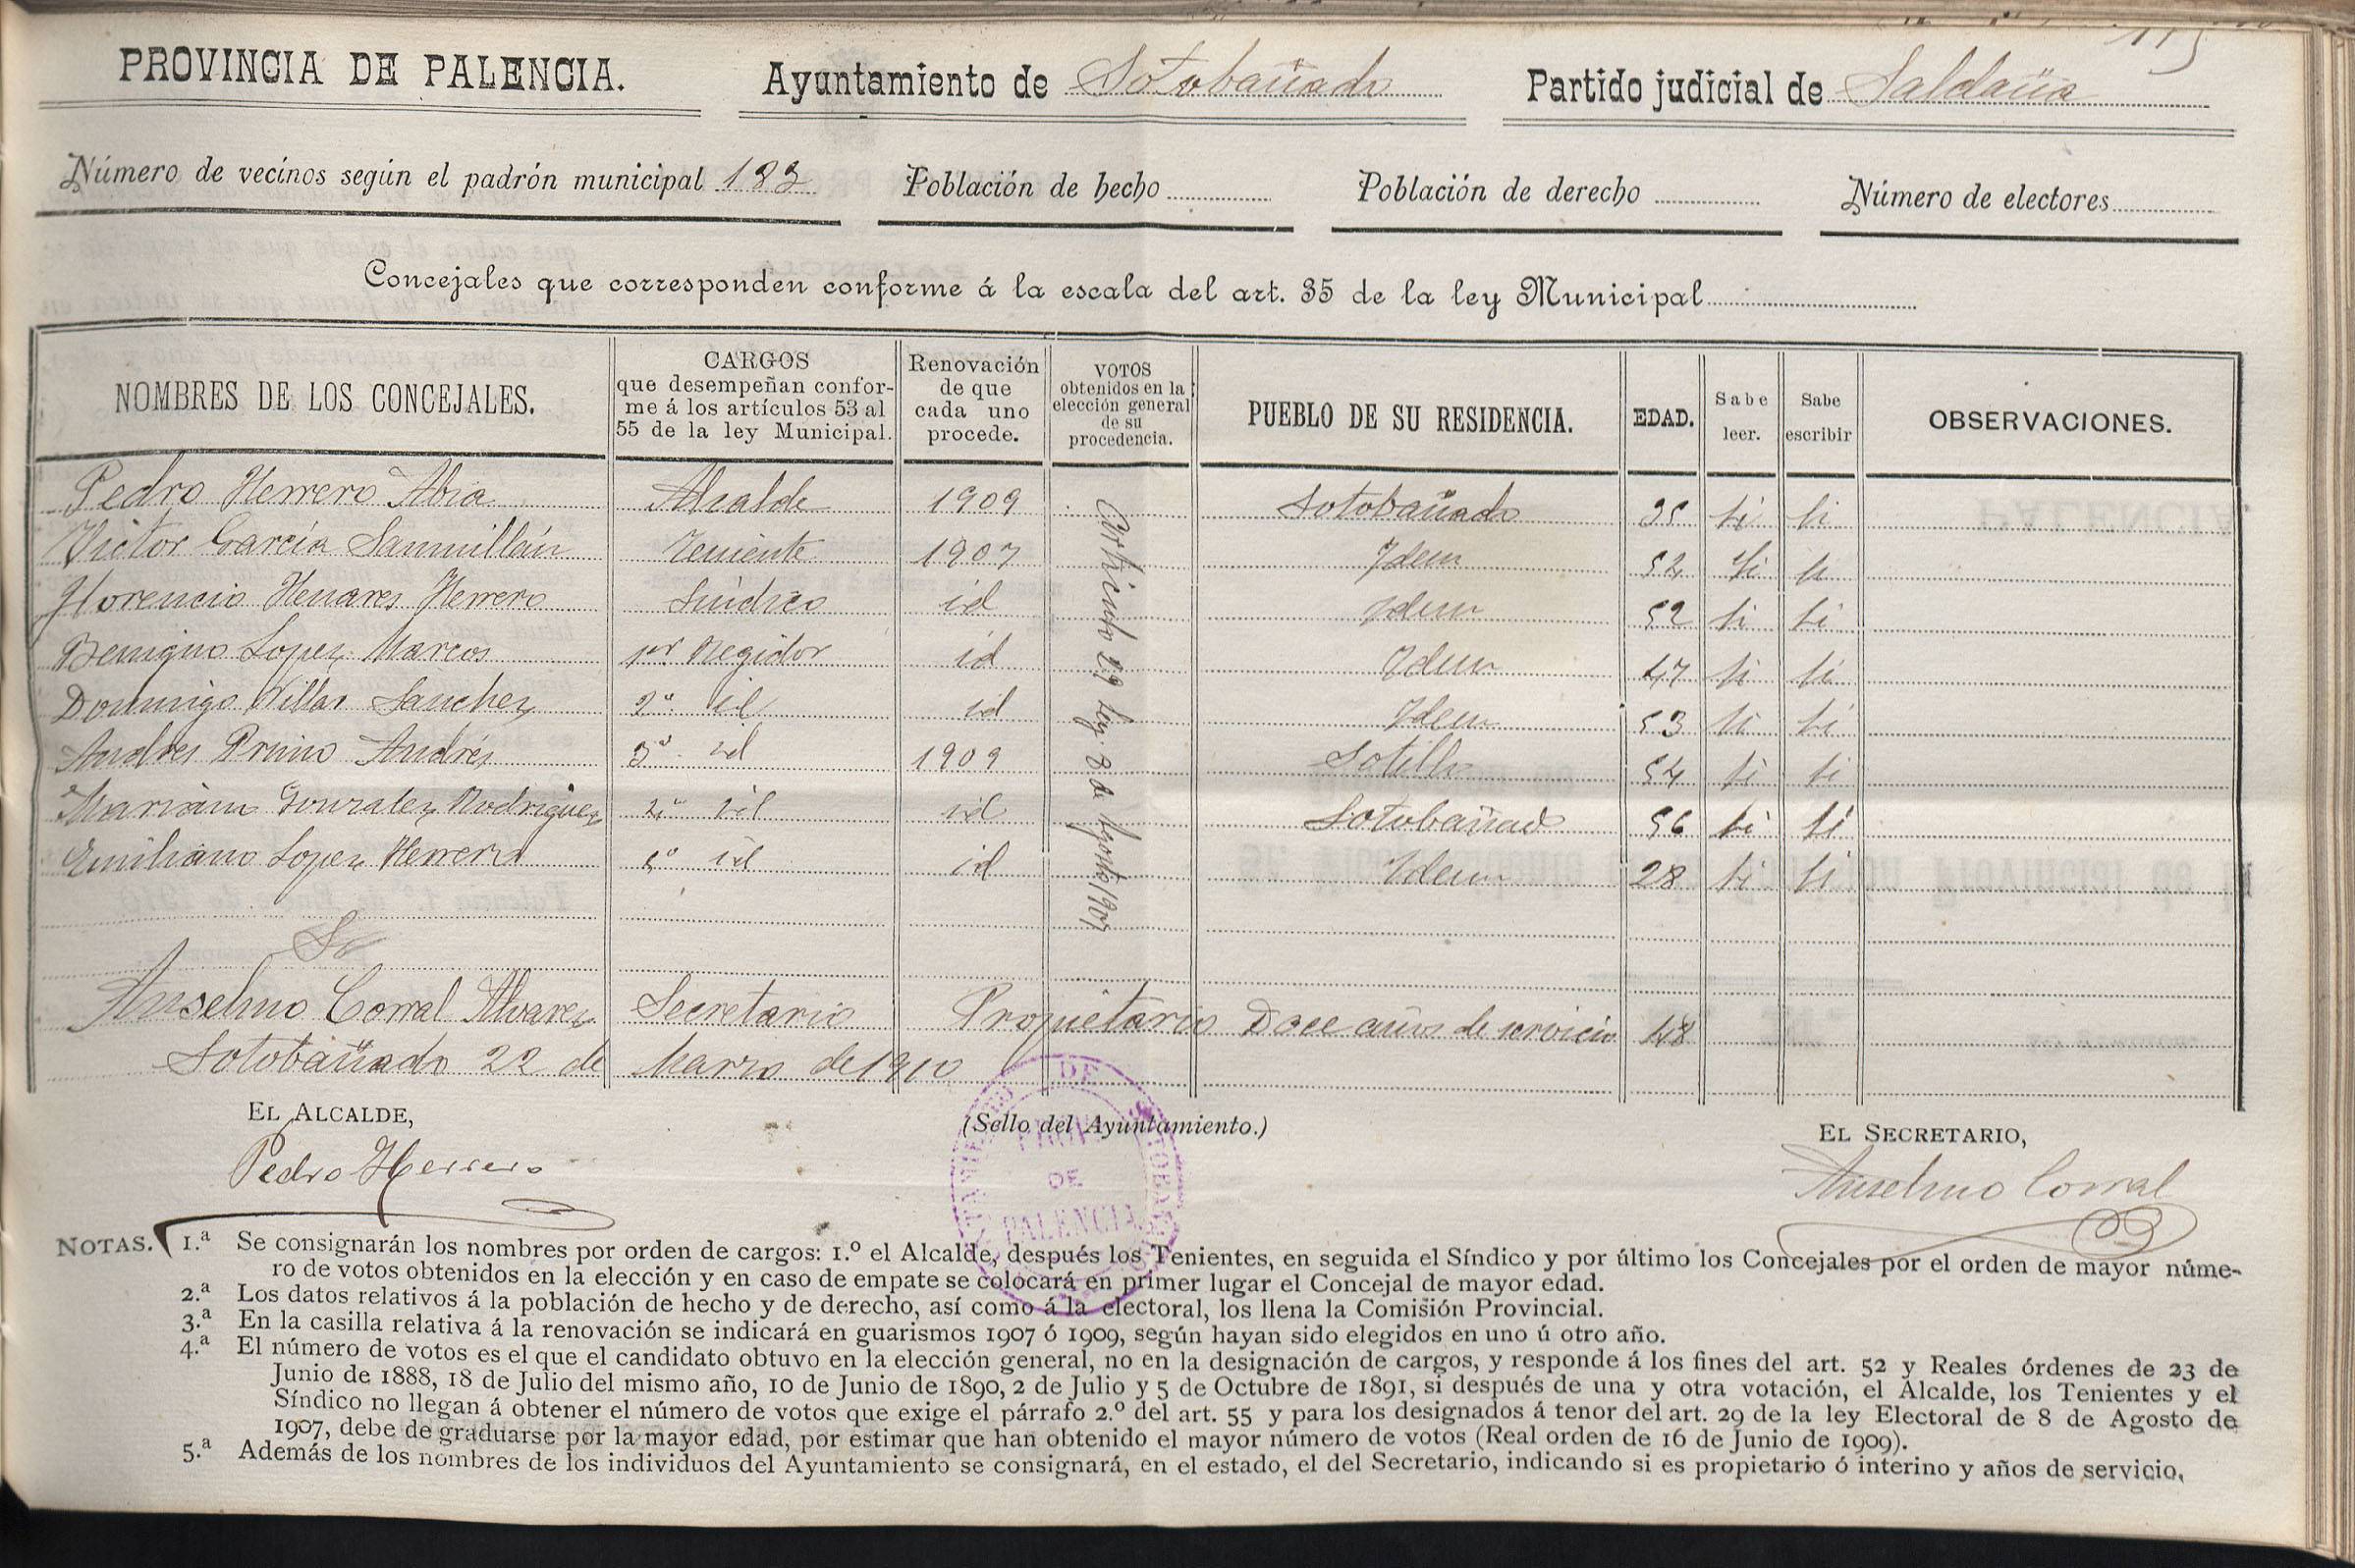 115
PROVINCIA DE PALENCIA. Ayuntamiento de Sotobañado Partido judicial de Saldaña
Número de vecinos según el padrón municipal 183 Población de hecho Población de derecho Número de electores
Concejales que corresponden conforme á la escala del art. 35 de la ley Municipal
NOMBRES DE LOS CONCEJALES. CARGOS que desempeñan conforme á los artículos 53 al 55 de la ley Municipal. Renovación de que cada uno procede. VOTOS obtenidos en la elección general de su procedencia. PUEBLO DE SU RESIDENCIA. EDAD. Sabe leer. Sabe escribir OBSERVACIONES.
Pedro Herrero Abia Alcalde 1909 Sotobañado 35 si si
Victor García Sanmillán Teniente 1907 Idem 52 Si si
Florencio Henares Herrero Síndico id Idem 52 si si
Benigno Lopez Marcos 1er Regidor id Idem 47 si si
Domingo Villar Sanchez 2º id id Idem 53 si si
Andres Primo Andrés 3º id 1909 Sotillo 54 si si
Mariano Gonzalez Rodriguez 4º id id Sotobañado 56 si si
Emiliano Lopez Herrero 5º id id Idem 28 si si
Articulo 29 ley 8 de Agosto 1907
Anselmo Corral Alvarez Secretario Propietario Doce años de servicio 48
Sotobañado 22 de Marzo de 1910
EL ALCALDE, (Sello del Ayuntamiento.) EL SECRETARIO,
Pedro Herrero Anselmo Corral
PROVª DE PALENCIA
NOTAS. 1.ª Se consignarán los nombres por orden de cargos: 1.º el Alcalde, después los Tenientes, en seguida el Síndico y por último los Concejales por el orden de mayor núme-
ro de votos obtenidos en la elección y en caso de empate se colocará en primer lugar el Concejal de mayor edad.
2.ª Los datos relativos á la población de hecho y de derecho, así como á la electoral, los llena la Comisión Provincial.
3.ª En la casilla relativa á la renovación se indicará en guarismos 1907 ó 1909, según hayan sido elegidos en uno ú otro año.
4.ª El número de votos es el que el candidato obtuvo en la elección general, no en la designación de cargos, y responde á los fines del art. 52 y Reales órdenes de 23 de
Junio de 1888, 18 de Julio del mismo año, 10 de Junio de 1890, 2 de Julio y 5 de Octubre de 1891, si después de una y otra votación, el Alcalde, los Tenientes y el
Síndico no llegan á obtener el número de votos que exige el párrafo 2.º del art. 55 y para los designados á tenor del art. 29 de la ley Electoral de 8 de Agosto de
1907, debe de graduarse por la mayor edad, por estimar que han obtenido el mayor número de votos (Real orden de 16 de Junio de 1909).
5.ª Además de los nombres de los individuos del Ayuntamiento se consignará, en el estado, el del Secretario, indicando si es propietario ó interino y años de servicio.